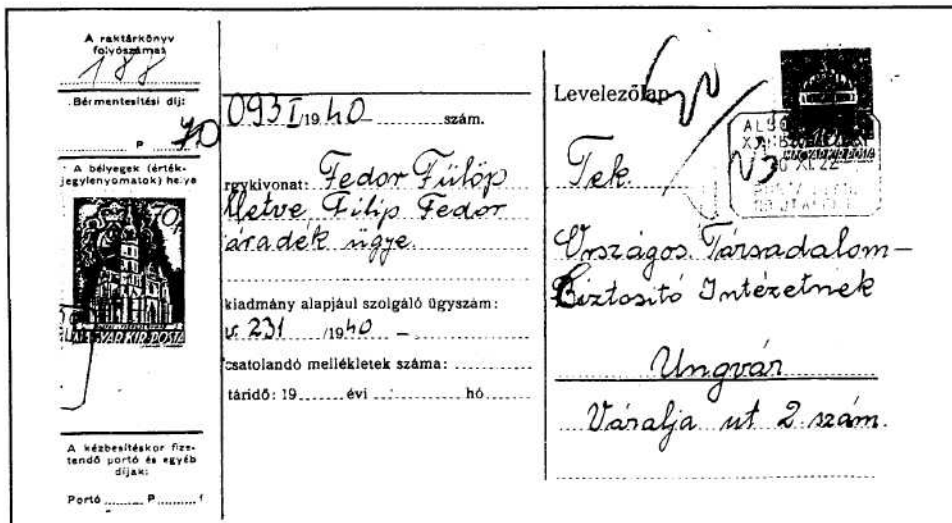 A raktárkönyv
folyószáma:
188
Bérmentesítési díj:
P 70 f
A bélyegek (érték-
jegylenyomatok) helye
70f
MAGYAR KIR. POSTA
A kézbesítéskor fize-
tendő portó és egyéb
díjak:
Portó ........ P ........ f
093 I/19 40 szám.
rgykivonat: Fedor Fülöp
lletve Filip Fedor
áradék ügye.
kiadmány alapjául szolgáló ügyszám:
231 /1940 –
csatolandó mellékletek száma: ........
táridő: 19...... évi ........ hó ........
Levelezőlap
MAGYAR KIR. POSTA
XI. 22
Tek.
Országos Társadalom-
Biztosító Intézetnek
Ungvár
Váralja ut 2. szám.